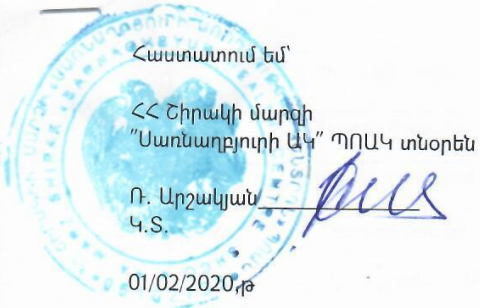 Հաստատում եմ՝
ՀՀ Շիրակի մարզի
"Սառնաղբյուրի ԱԿ" ՊՈԱԿ տնօրեն
Ռ. Արշակյան
Կ.Տ.
01/02/2020,թ